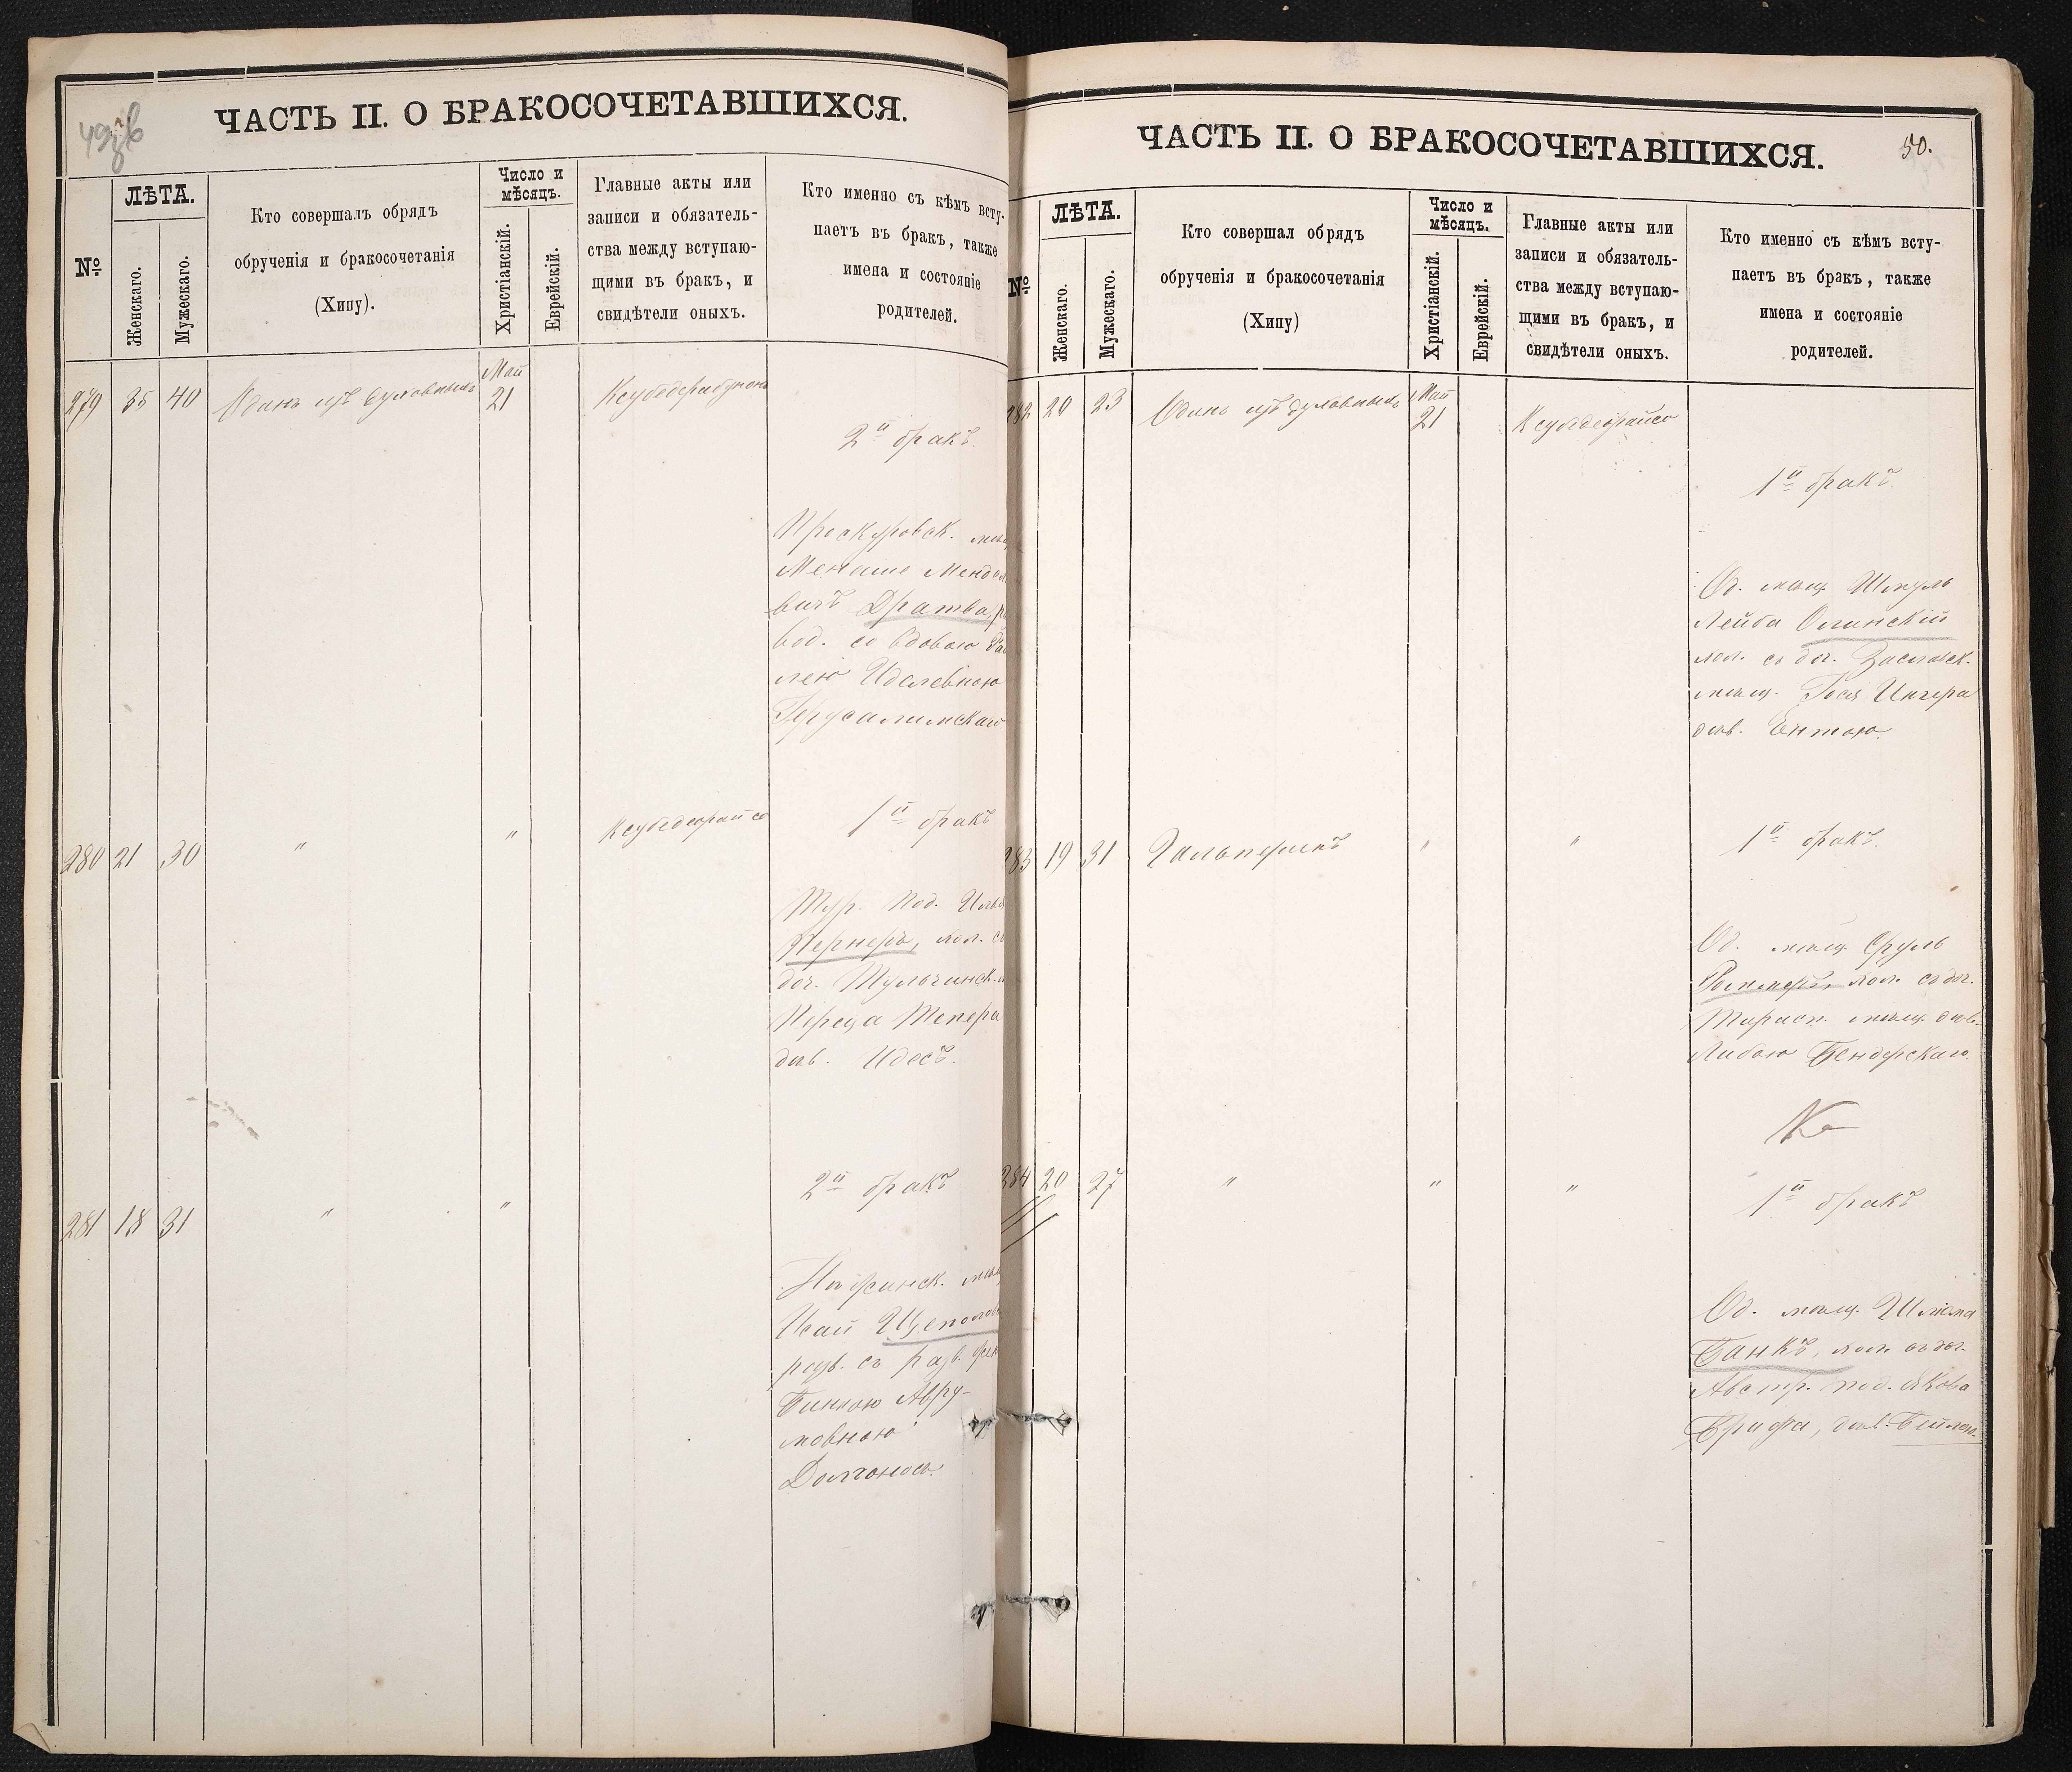 49 об
ЧАСТЬ II. О БРАКОСОЧЕТАВШИХСЯ.
№
ЛѢТА.
Женскаго.
Мужескаго.
Кто совершалъ обрядъ
обрученія и бракосочетанія
(Хипу).
Число и
мѣсяцъ.
Христіанскій.
Еврейскій.
Главные акты или
записи и обязатель-
ства между вступаю-
щими въ бракъ, и
свидѣтели оныхъ.
Кто именно съ кѣмъ всту-
паетъ въ бракъ, также
имена и состояніе
родителей.
279 35 40 Одинъ изъ духовныхъ Май 21
2й бракъ.
Проскуровск. мѣщ
Менаше Менделе
вичъ Дратва, ра
вод. со вдовою
лею Иделевною
Іерусалимскаго
280 21 30 " " Ксубедерайсо
1й бракъ
Тур. Под.
Пернеръ, хол. съ
доч. Тульчинск. м
Переца Тепера
дѣв. Идесъ.
281 18 31 " "
2й бракъ
Исай Щеполов
разв. съ разв. жен
Бинкою Абру-
мовною
Долгонось.
50.
ЧАСТЬ II. О БРАКОСОЧЕТАВШИХСЯ.
№
ЛѢТА.
Женскаго.
Мужескаго.
Кто совершал обрядъ
обрученія и бракосочетанія
(Хипу)
Число и
мѣсяцъ.
Христіанскій.
Еврейскій.
Главные акты или
записи и обязатель-
ства между вступаю-
щими въ бракъ, и
свидѣтели оныхъ.
Кто именно съ кѣмъ всту-
паетъ въ бракъ, также
имена и состояніе
родителей.
282 20 23 Одинъ изъ духовныхъ Май 21 Ксубедерайсо
1й бракъ.
Од. мѣщ. Шмуль
Лейба Олинскій
хол. съ доч. Заславск.
мѣщ. Гося Ингера
дѣв. Ентою.
283 19 31 Гальперинъ " "
1й бракъ.
Од. мѣщ. Сруль
хол. съ доч.
Тирасп. мѣщ. дѣв.
Либою Бендерскаго.
284 20 27 " " "
1й бракъ
Од. мѣщ. Шлиома
Банкъ, хол. съ доч.
Австр. под. Якова
Брифа, дѣв. Бейлею.